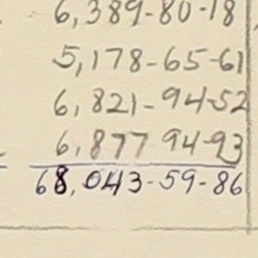 6,389-80-18
5,178-65-61
6,821-94-52
6,877 94-93
68,043-59-86